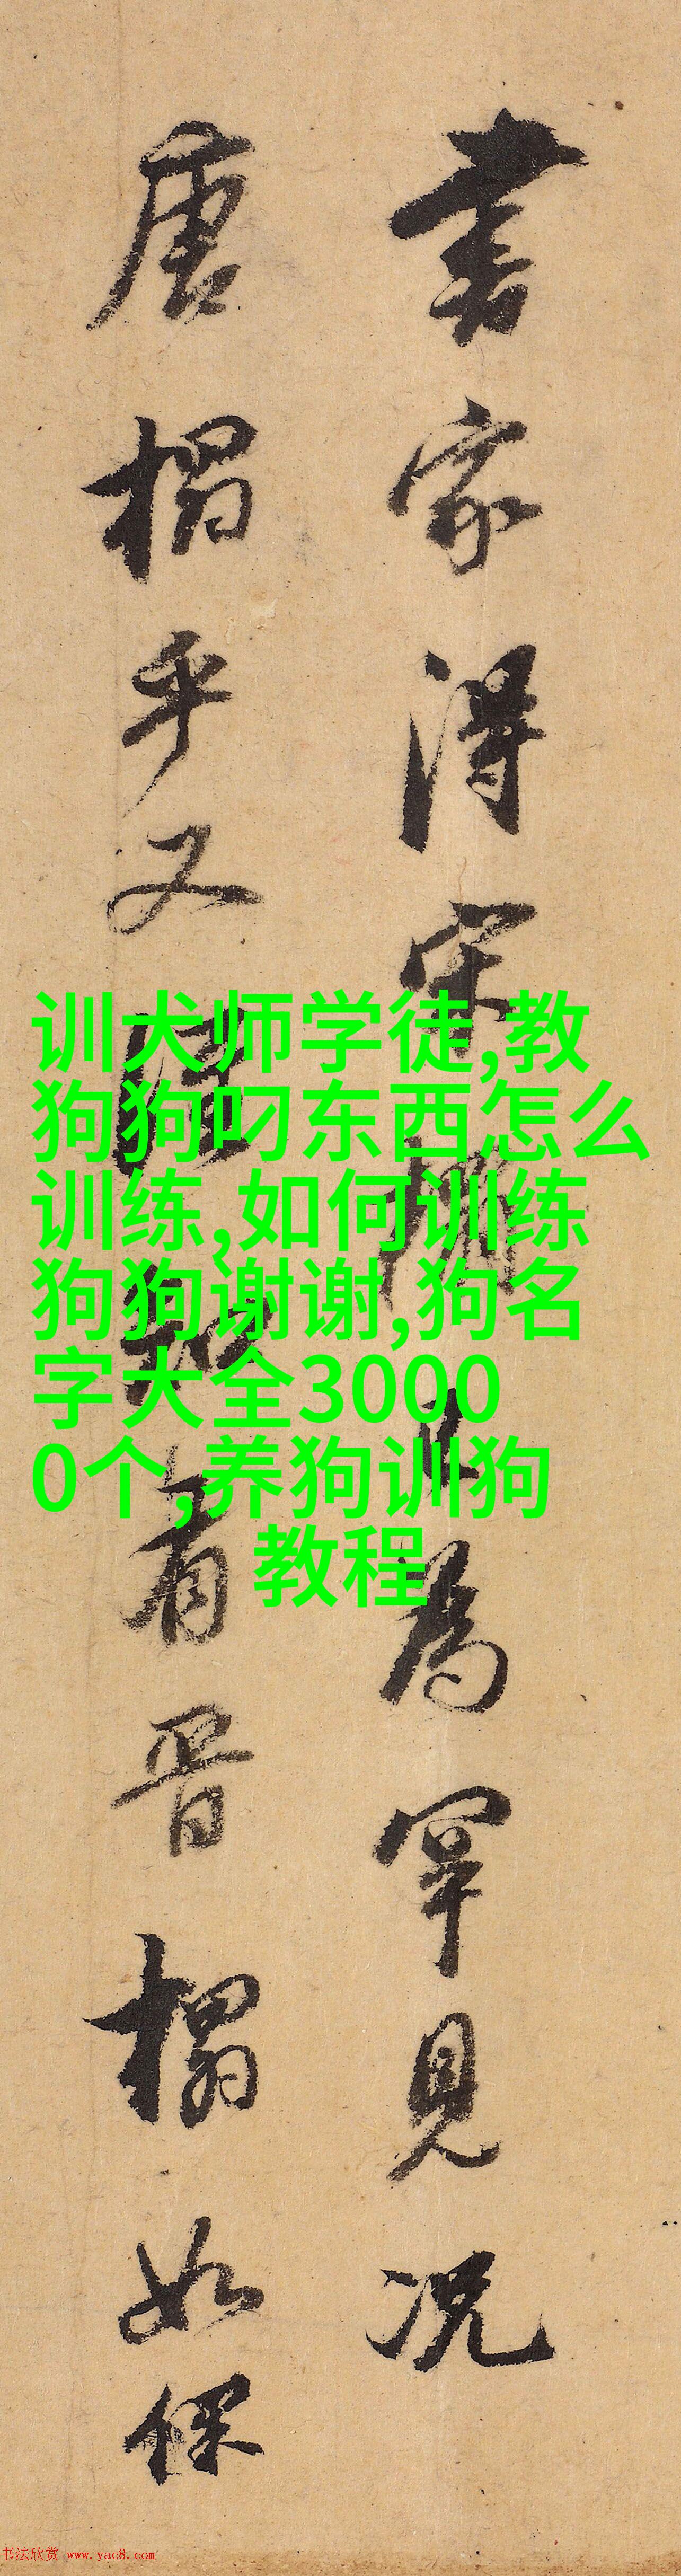 書家得宋搨已為罕見況
唐搨乎又知有晉搨如保
训犬师学徒,教
狗狗叼东西怎么
训练,如何训练
狗狗谢谢,狗名
字大全3000
0个,养狗训狗
教程
书法欣赏 www.yac8.com